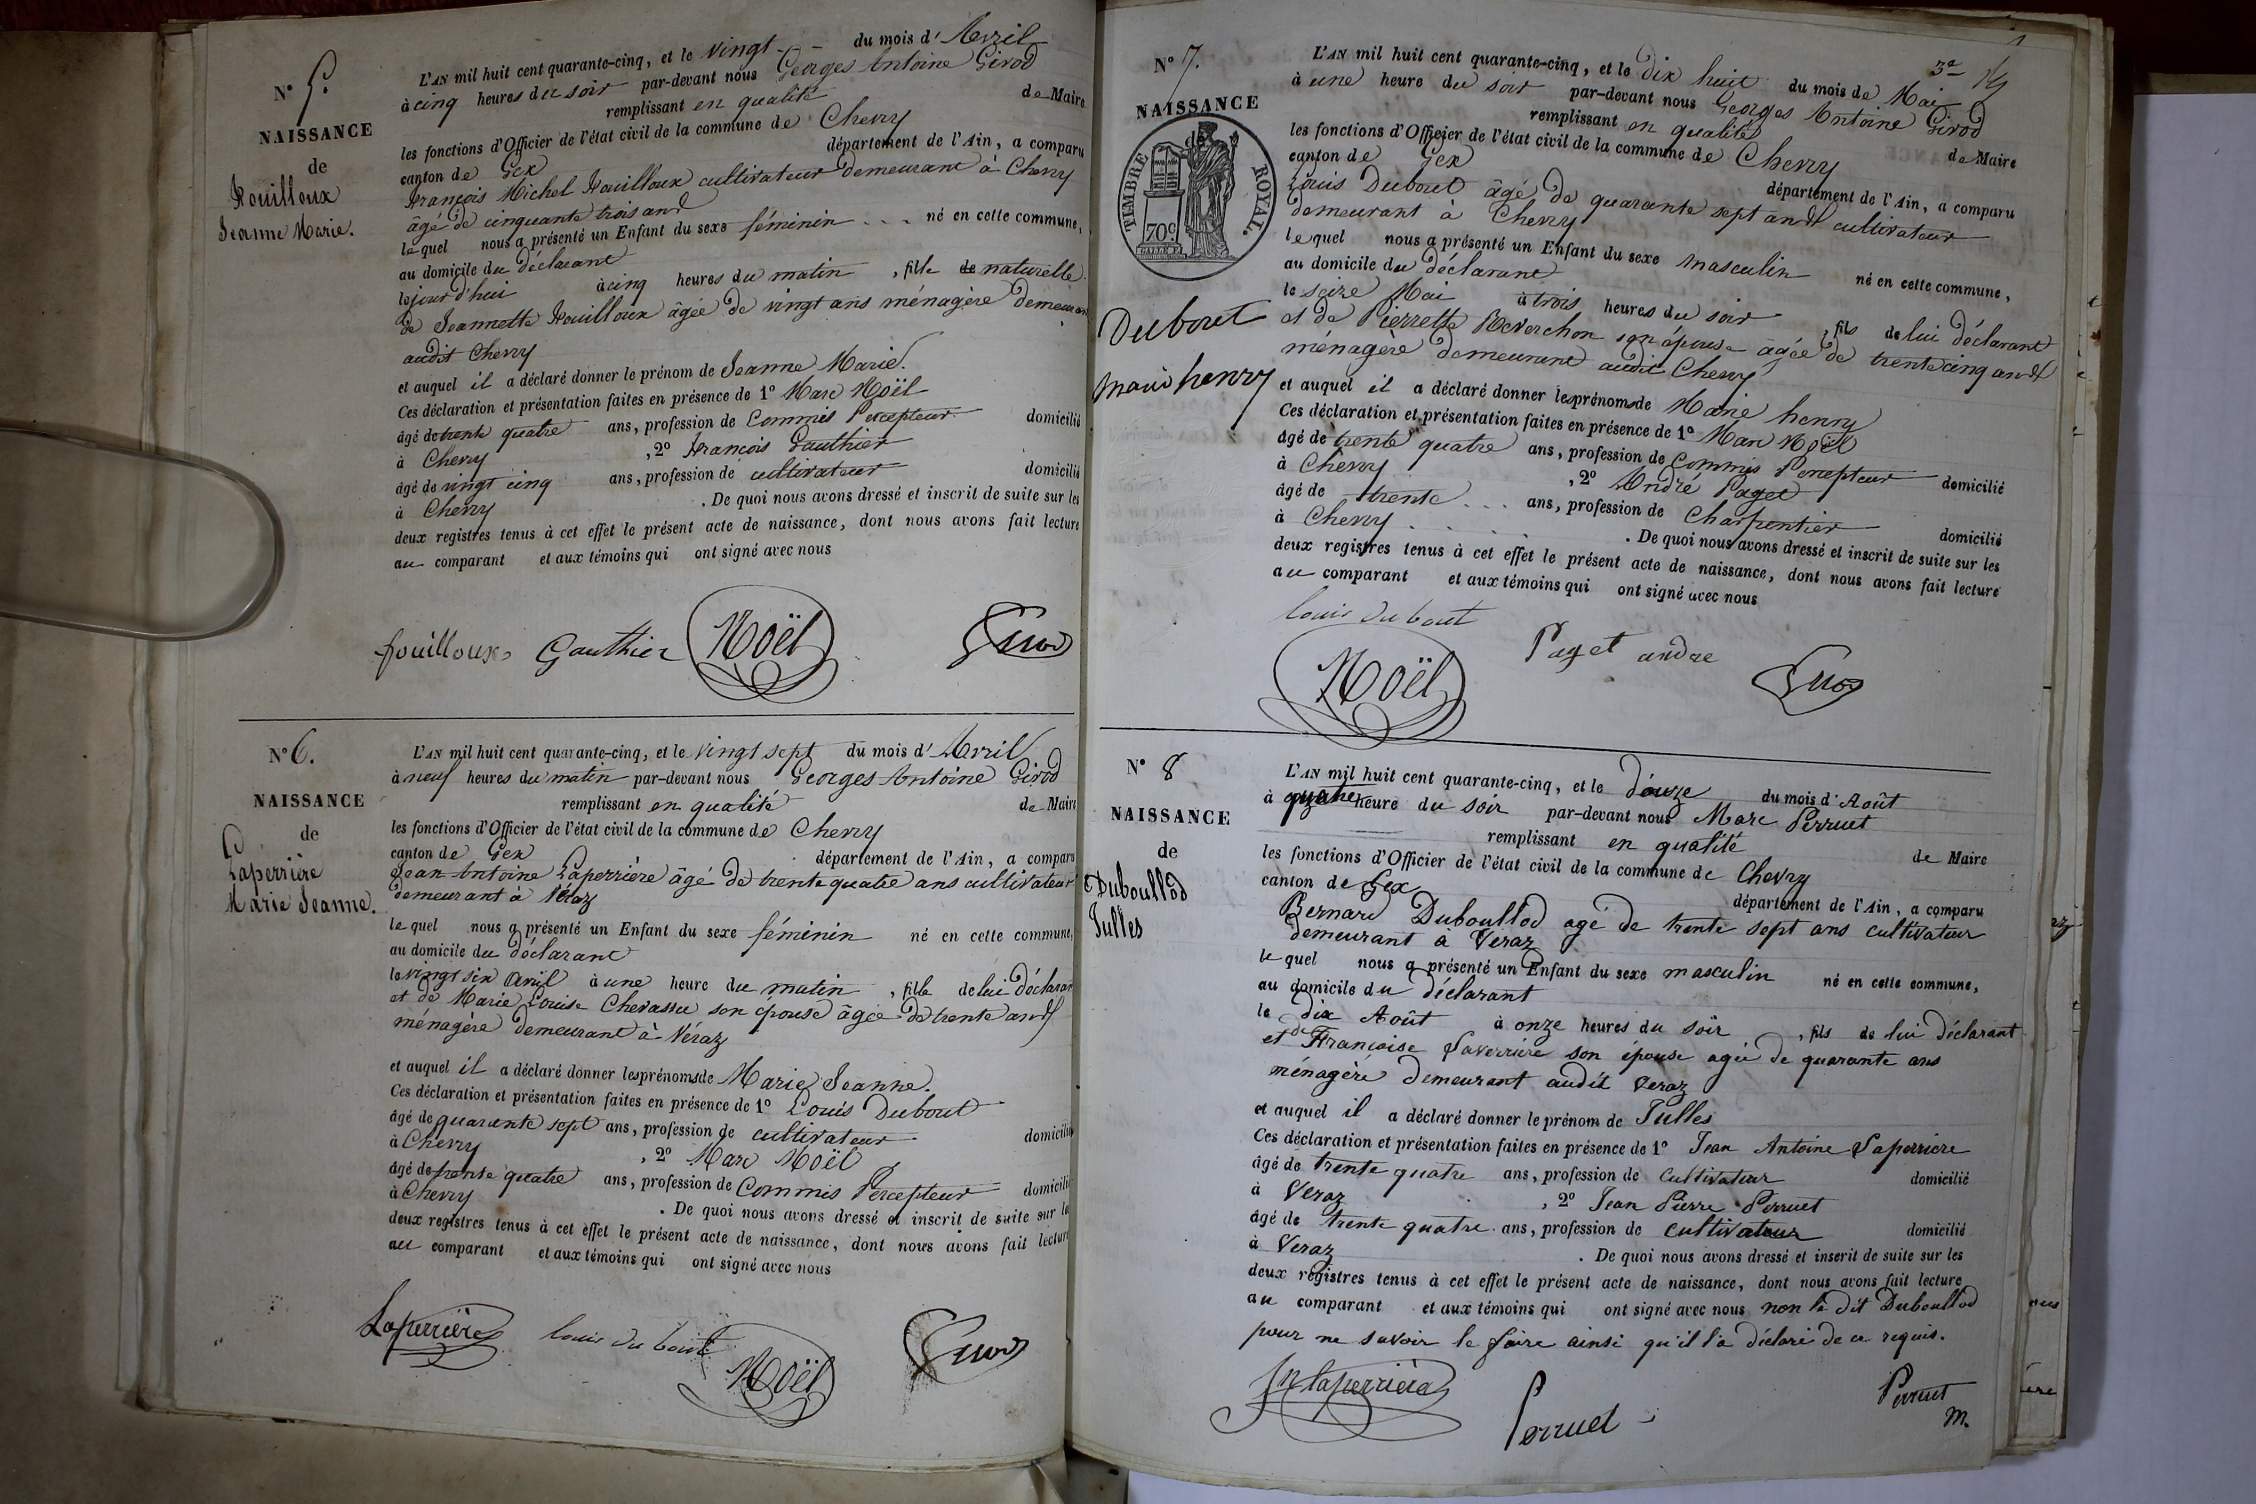 N° 5.
NAISSANCE
de
Fouilloux
Jeanne Marie.
L'AN mil huit cent quarante-cinq, et le vingt du mois d' Avril
à cinq heures du soir par-devant nous Georges Antoine Girod
remplissant en qualité de Maire
les fonctions d'Officier de l'état civil de la commune de Chevry
canton de Gex département de l'Ain, a comparu
François Michel Fouilloux cultivateur demeurant à Chevry
âgé de cinquante trois ans
lequel nous a présenté un Enfant du sexe féminin né en cette commune,
au domicile du déclarant
le jour d'hui à cinq heures du matin, fille de naturelle
de Jeannette Fouilloux âgée de vingt ans ménagère demeurant
audit Chevry
et auquel il a déclaré donner le prénom de Jeanne Marie.
Ces déclaration et présentation faites en présence de 1° Marc Noël
âgé de trente quatre ans, profession de Commis Percepteur domicilié
à Chevry, 2° François Gauthier
âgé de vingt cinq ans, profession de cultivateur domicilié
à Chevry. De quoi nous avons dressé et inscrit de suite sur les
deux registres tenus à cet effet le présent acte de naissance, dont nous avons fait lecture
au comparant et aux témoins qui ont signé avec nous
fouilloux Gauthier Noël Girod
N° 6.
NAISSANCE
de
Laperrière
Marie Jeanne.
L'AN mil huit cent quarante-cinq, et le vingt sept du mois d' Avril
à neuf heures du matin par-devant nous Georges Antoine Girod
remplissant en qualité de Maire
les fonctions d'Officier de l'état civil de la commune de Chevry
canton de Gex département de l'Ain, a comparu
Jean Antoine Laperrière âgé de trente quatre ans cultivateur
demeurant à Véraz
lequel nous a présenté un Enfant du sexe féminin né en cette commune,
au domicile du déclarant
le vingt six avril à une heure du matin, fille de lui déclarant
et de Marie Louise Chevassu son épouse âgée de trente ans
ménagère demeurant à Véraz
et auquel il a déclaré donner les prénoms de Marie Jeanne.
Ces déclaration et présentation faites en présence de 1° Louis Dubout
âgé de quarante sept ans, profession de cultivateur domicilié
à Chevry, 2° Marc Noël
âgé de trente quatre ans, profession de Commis Percepteur domicilié
à Chevry. De quoi nous avons dressé et inscrit de suite sur les
deux registres tenus à cet effet le présent acte de naissance, dont nous avons fait lecture
au comparant et aux témoins qui ont signé avec nous
Laperrière louis du bout Noël Girod
3e
N° 7.
NAISSANCE
de
TIMBRE ROYAL.
70c
Dubout
marie henry
L'AN mil huit cent quarante-cinq, et le dix huit du mois de Mai
à une heure du soir par-devant nous Georges Antoine Girod
remplissant en qualité de Maire
les fonctions d'Officier de l'état civil de la commune de Chevry
canton de Gex département de l'Ain, a comparu
Louis Dubout âgé de quarante sept ans cultivateur
demeurant à Chevry
lequel nous a présenté un Enfant du sexe masculin né en cette commune,
au domicile du déclarant
le seize Mai à trois heures du soir, fils de lui déclarant
et de Pierrette Reverchon son épouse âgée de trente cinq ans
ménagère demeurant audit Chevry
et auquel il a déclaré donner les prénoms de Marie henry
Ces déclaration et présentation faites en présence de 1° Marc Noël
âgé de trente quatre ans, profession de Commis Percepteur domicilié
à Chevry, 2° André Paget
âgé de trente ans, profession de Charpentier domicilié
à Chevry. De quoi nous avons dressé et inscrit de suite sur les
deux registres tenus à cet effet le présent acte de naissance, dont nous avons fait lecture
au comparant et aux témoins qui ont signé avec nous
louis du bout
Noël Paget andre Girod
N° 8
NAISSANCE
de
Duboullod
Julles
L'AN mil huit cent quarante-cinq, et le douze du mois d'Août
à quatre heure du soir par-devant nous Marc Perruet
remplissant en qualité de Maire
les fonctions d'Officier de l'état civil de la commune de Chevry
canton de Gex département de l'Ain, a comparu
Bernard Duboullod agé de trente sept ans cultivateur
demeurant à Veraz
le quel nous a présenté un Enfant du sexe masculin né en cette commune,
au domicile du déclarant
le dix Août à onze heures du soir, fils de lui déclarant
et de Françoise Laverrière son épouse agée de quarante ans
ménagère demeurant audit Veraz
et auquel il a déclaré donner le prénom de Julles
Ces déclaration et présentation faites en présence de 1° Jean Antoine Laperriere
âgé de trente quatre ans, profession de cultivateur domicilié
à Veraz, 2° Jean Pierre Perruet
âgé de trente quatre ans, profession de cultivateur domicilié
à Veraz. De quoi nous avons dressé et inscrit de suite sur les
deux registres tenus à cet effet le présent acte de naissance, dont nous avons fait lecture
au comparant et aux témoins qui ont signé avec nous non le dit Duboullod
pour ne savoir le faire ainsi qu'il l'a déclaré de ce requis.
Jn laperrière Perruet Perruet
m.